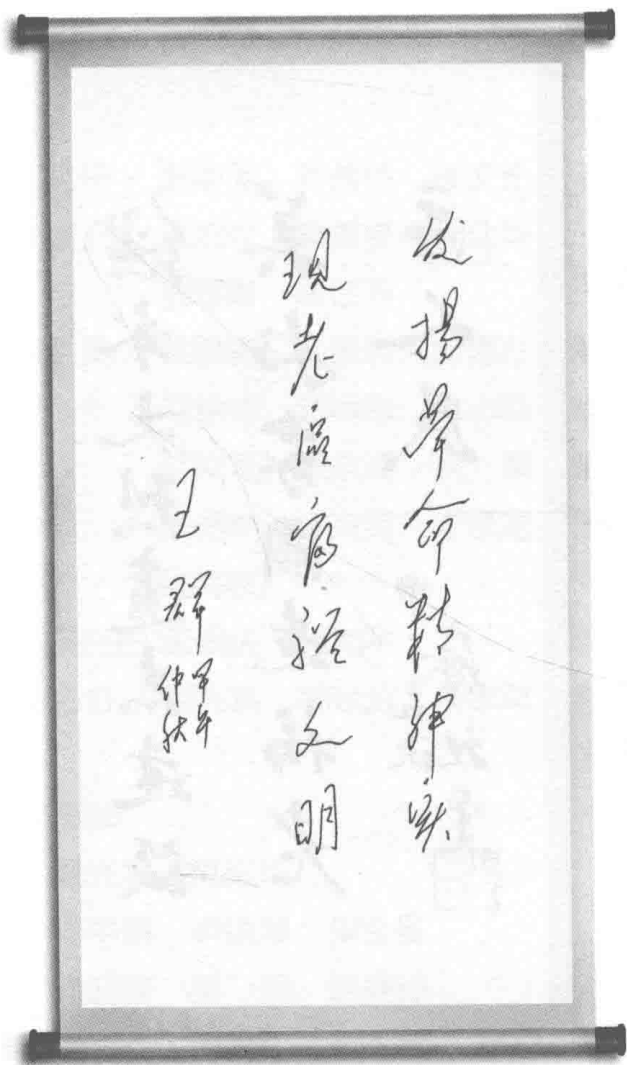 发扬革命精神实
现老区富裕文明
王群
甲午
仲秋